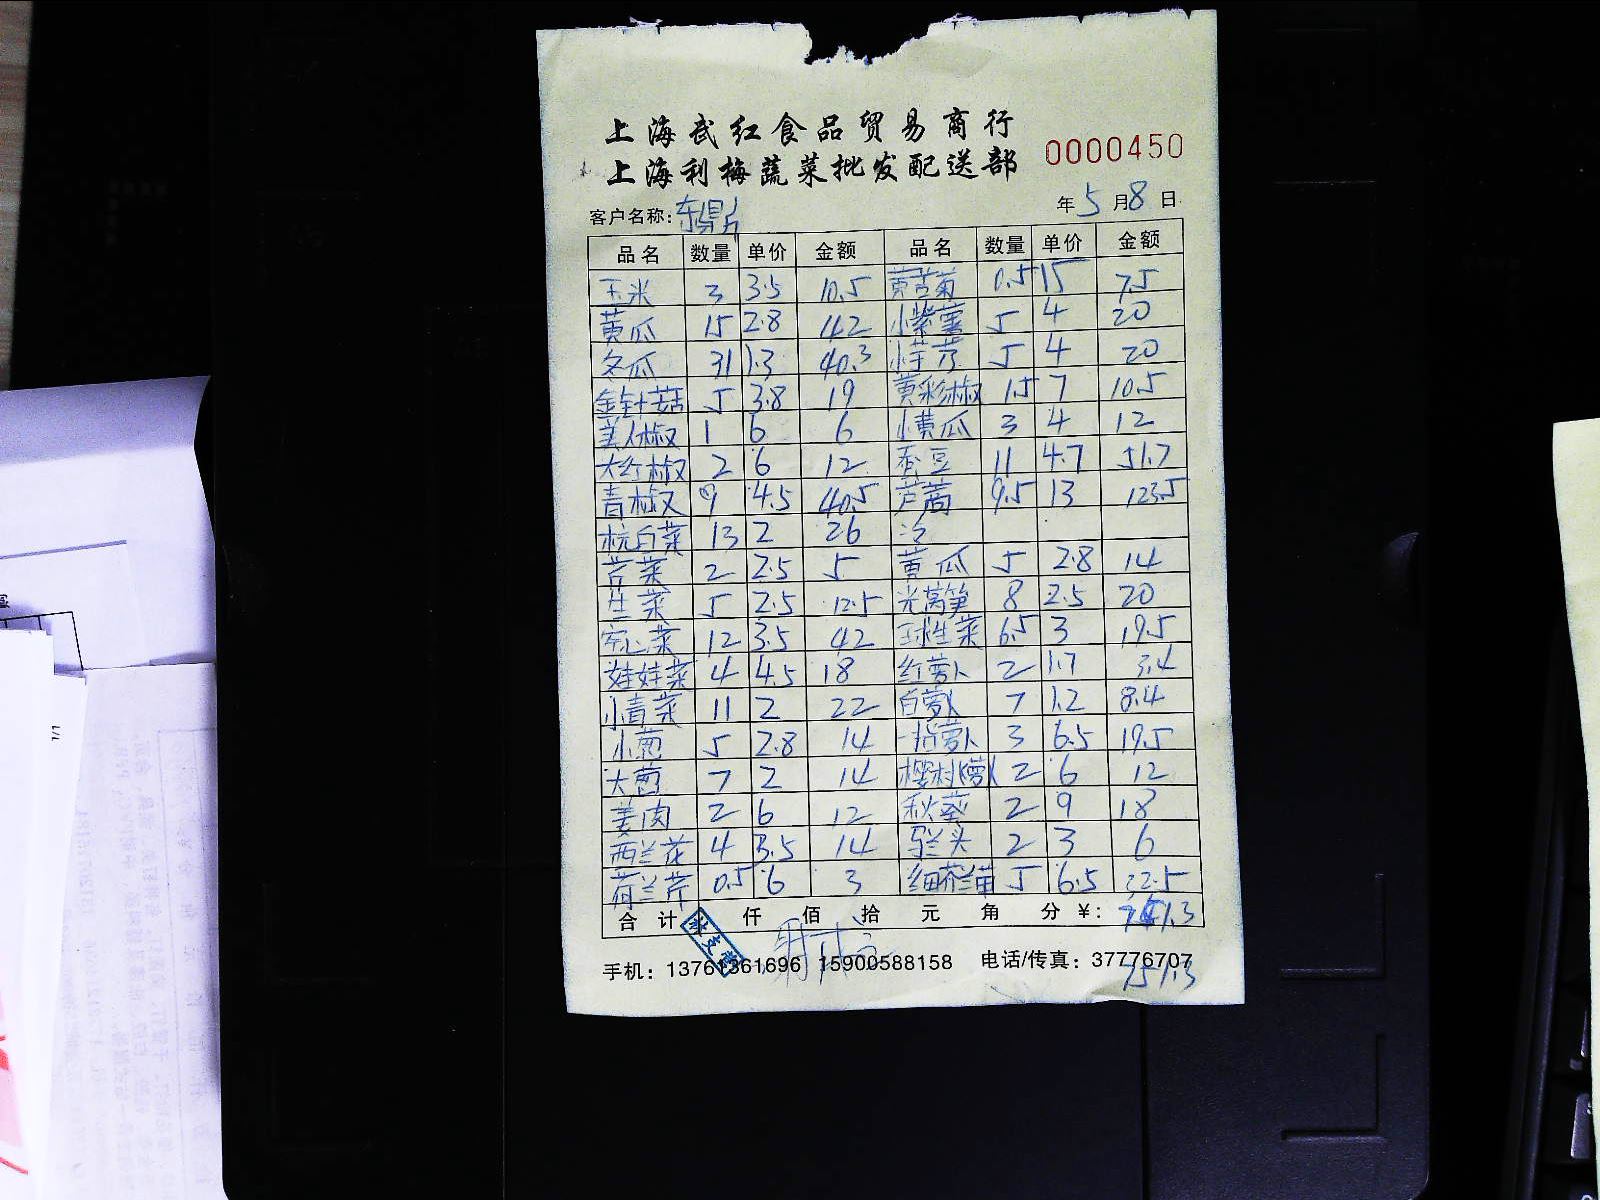 上海武红食品贸易商行
上海利梅蔬菜批发配送部 0000450
客户名称: 东鼎 年5月8日
品名 数量 单价 金额 品名 数量 单价 金额
玉米 3 3.5 10.5 黄苦菊 0.5 15 7.5
黄瓜 15 2.8 42 小紫薯 5 4 20
冬瓜 31 1.3 40.3 小芋艿 5 4 20
金针菇 5 3.8 19 黄彩椒 1.5 7 10.5
美人椒 1 6 6 小黄瓜 3 4 12
大红椒 2 6 12 蚕豆 11 4.7 51.7
青椒 9 4.5 40.5 芦蒿 9.5 13 123.5
杭白菜 13 2 26 冷
芹菜 2 2.5 5 黄瓜 5 2.8 14
生菜 5 2.5 12.5 光莴笋 8 2.5 20
空心菜 12 3.5 42 球生菜 6.5 3 19.5
娃娃菜 4 4.5 18 红萝卜 2 1.7 3.4
小青菜 11 2 22 白萝卜 7 1.2 8.4
小葱 5 2.8 14 一指萝卜 3 6.5 19.5
大葱 7 2 14 樱桃萝卜 2 6 12
姜肉 2 6 12 秋葵 2 9 18
西兰花 4 3.5 14 马兰头 2 3 6
荷兰芹 0.5 6 3 细芥兰苗 5 6.5 32.5
合计 仟 佰 拾 元 角 分 ¥:
手机: 13761361696 15900588158 电话/传真: 37776707
751.3